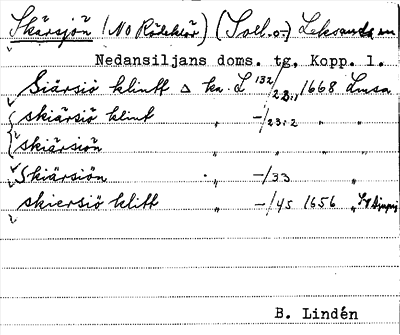 Skärsjön (NO Rälsklär) (Soll. o.) Leksands sn
Nedansiljans doms. tg, Kopp. l.
Siärsiö klintt △ ka. L 132/23:1 1668 Lmsa
skiärsiö klint " -/23:2 " "
skiärsiön " " " "
Skiärsiön " -/33 "
skiersiö klitt " -/45 1656 "
B. Lindén